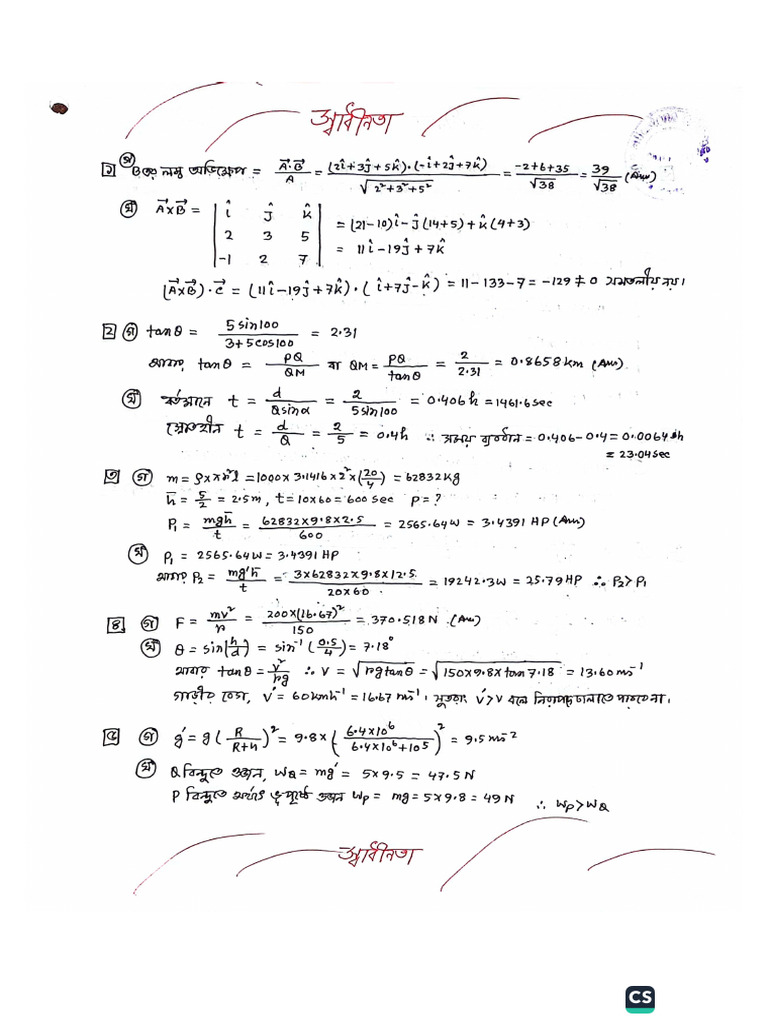 স্বাধীনতা
১ গ B এর লম্ব অভিক্ষেপ = A⃗·B⃗ / A = (2î+3ĵ+5k̂)·(-î+2ĵ+7k̂) / √(2²+3²+5²) = (-2+6+35) / √38 = 39 / √38 (Ans)
ঘ A⃗×B⃗ = | î ĵ k̂ | = (21-10)î - ĵ(14+5) + k̂(4+3)
| 2 3 5 |
| -1 2 7 | = 11î-19ĵ+7k̂
(A⃗×B⃗)·C⃗ = (11î-19ĵ+7k̂)·(î+7ĵ-k̂) = 11-133-7 = -129 ≠ 0 সমতলীয় নয়।
২ গ tanθ = 5 sin100 / 3+5cos100 = 2.31
আবার, tanθ = PQ / QM বা QM = PQ / tanθ = 2 / 2.31 = 0.8658 km (Ans)
ঘ বর্তমানে t = d / Q sinα = 2 / 5 sin100 = 0.406 h = 1461.6 sec
স্রোতহীন t = d / Q = 2 / 5 = 0.4h ∴ সময় ব্যবধান = 0.406-0.4 = 0.0064 h
= 23.04 sec
৩ গ m = ρπr²l = 1000×3.1416×2²×(20/4) = 62832 kg
h̄ = 5/2 = 2.5m, t = 10×60 = 600 sec P = ?
P₁ = mgh̄ / t = 62832×9.8×2.5 / 600 = 2565.64 W = 3.4391 HP (Ans)
ঘ P₁ = 2565.64 W = 3.4391 HP
আবার P₂ = mg'h̄ / t = 3×62832×9.8×12.5 / 20×60 = 19242.3 W = 25.79 HP ∴ P₂>P₁
৪ গ F = mv² / r = 200×(16.67)² / 150 = 370.518 N (Ans)
ঘ θ = sin(h/d) = sin⁻¹(0.5/4) = 7.18°
আবার tanθ = v²/rg ∴ v = √(rg tanθ) = √(150×9.8×tan 7.18) = 13.60 ms⁻¹
গাড়ীর বেগ, v' = 60 kmh⁻¹ = 16.67 ms⁻¹। সুতরাং v'>v বলে নিরাপদে চালাতে পারবে না।
৫ গ g' = g(R / R+h)² = 9.8×(6.4×10⁶ / 6.4×10⁶+10⁵)² = 9.5 ms⁻²
ঘ Q বিন্দুতে ওজন, W_Q = mg' = 5×9.5 = 47.5N
P বিন্দুতে অর্থাৎ ভূপৃষ্ঠে ওজন W_P = mg = 5×9.8 = 49 N ∴ W_P>W_Q
স্বাধীনতা
CS